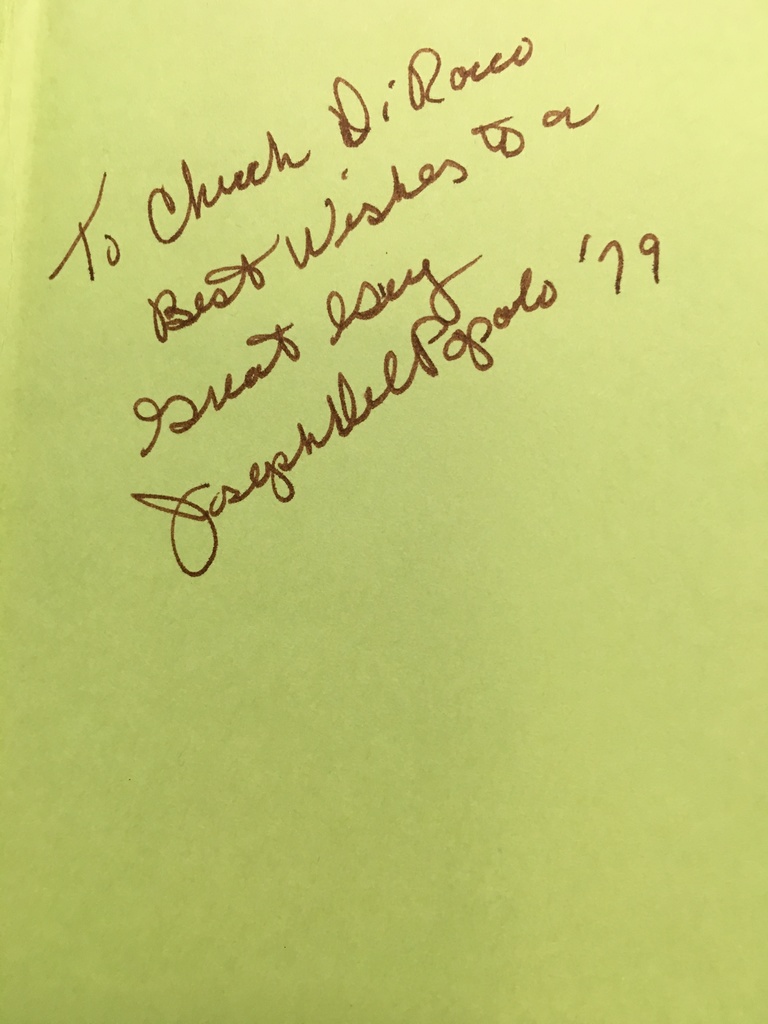 To Chuck DiRocco
Best Wishes to a
Great Guy
Joseph Del Popolo '79